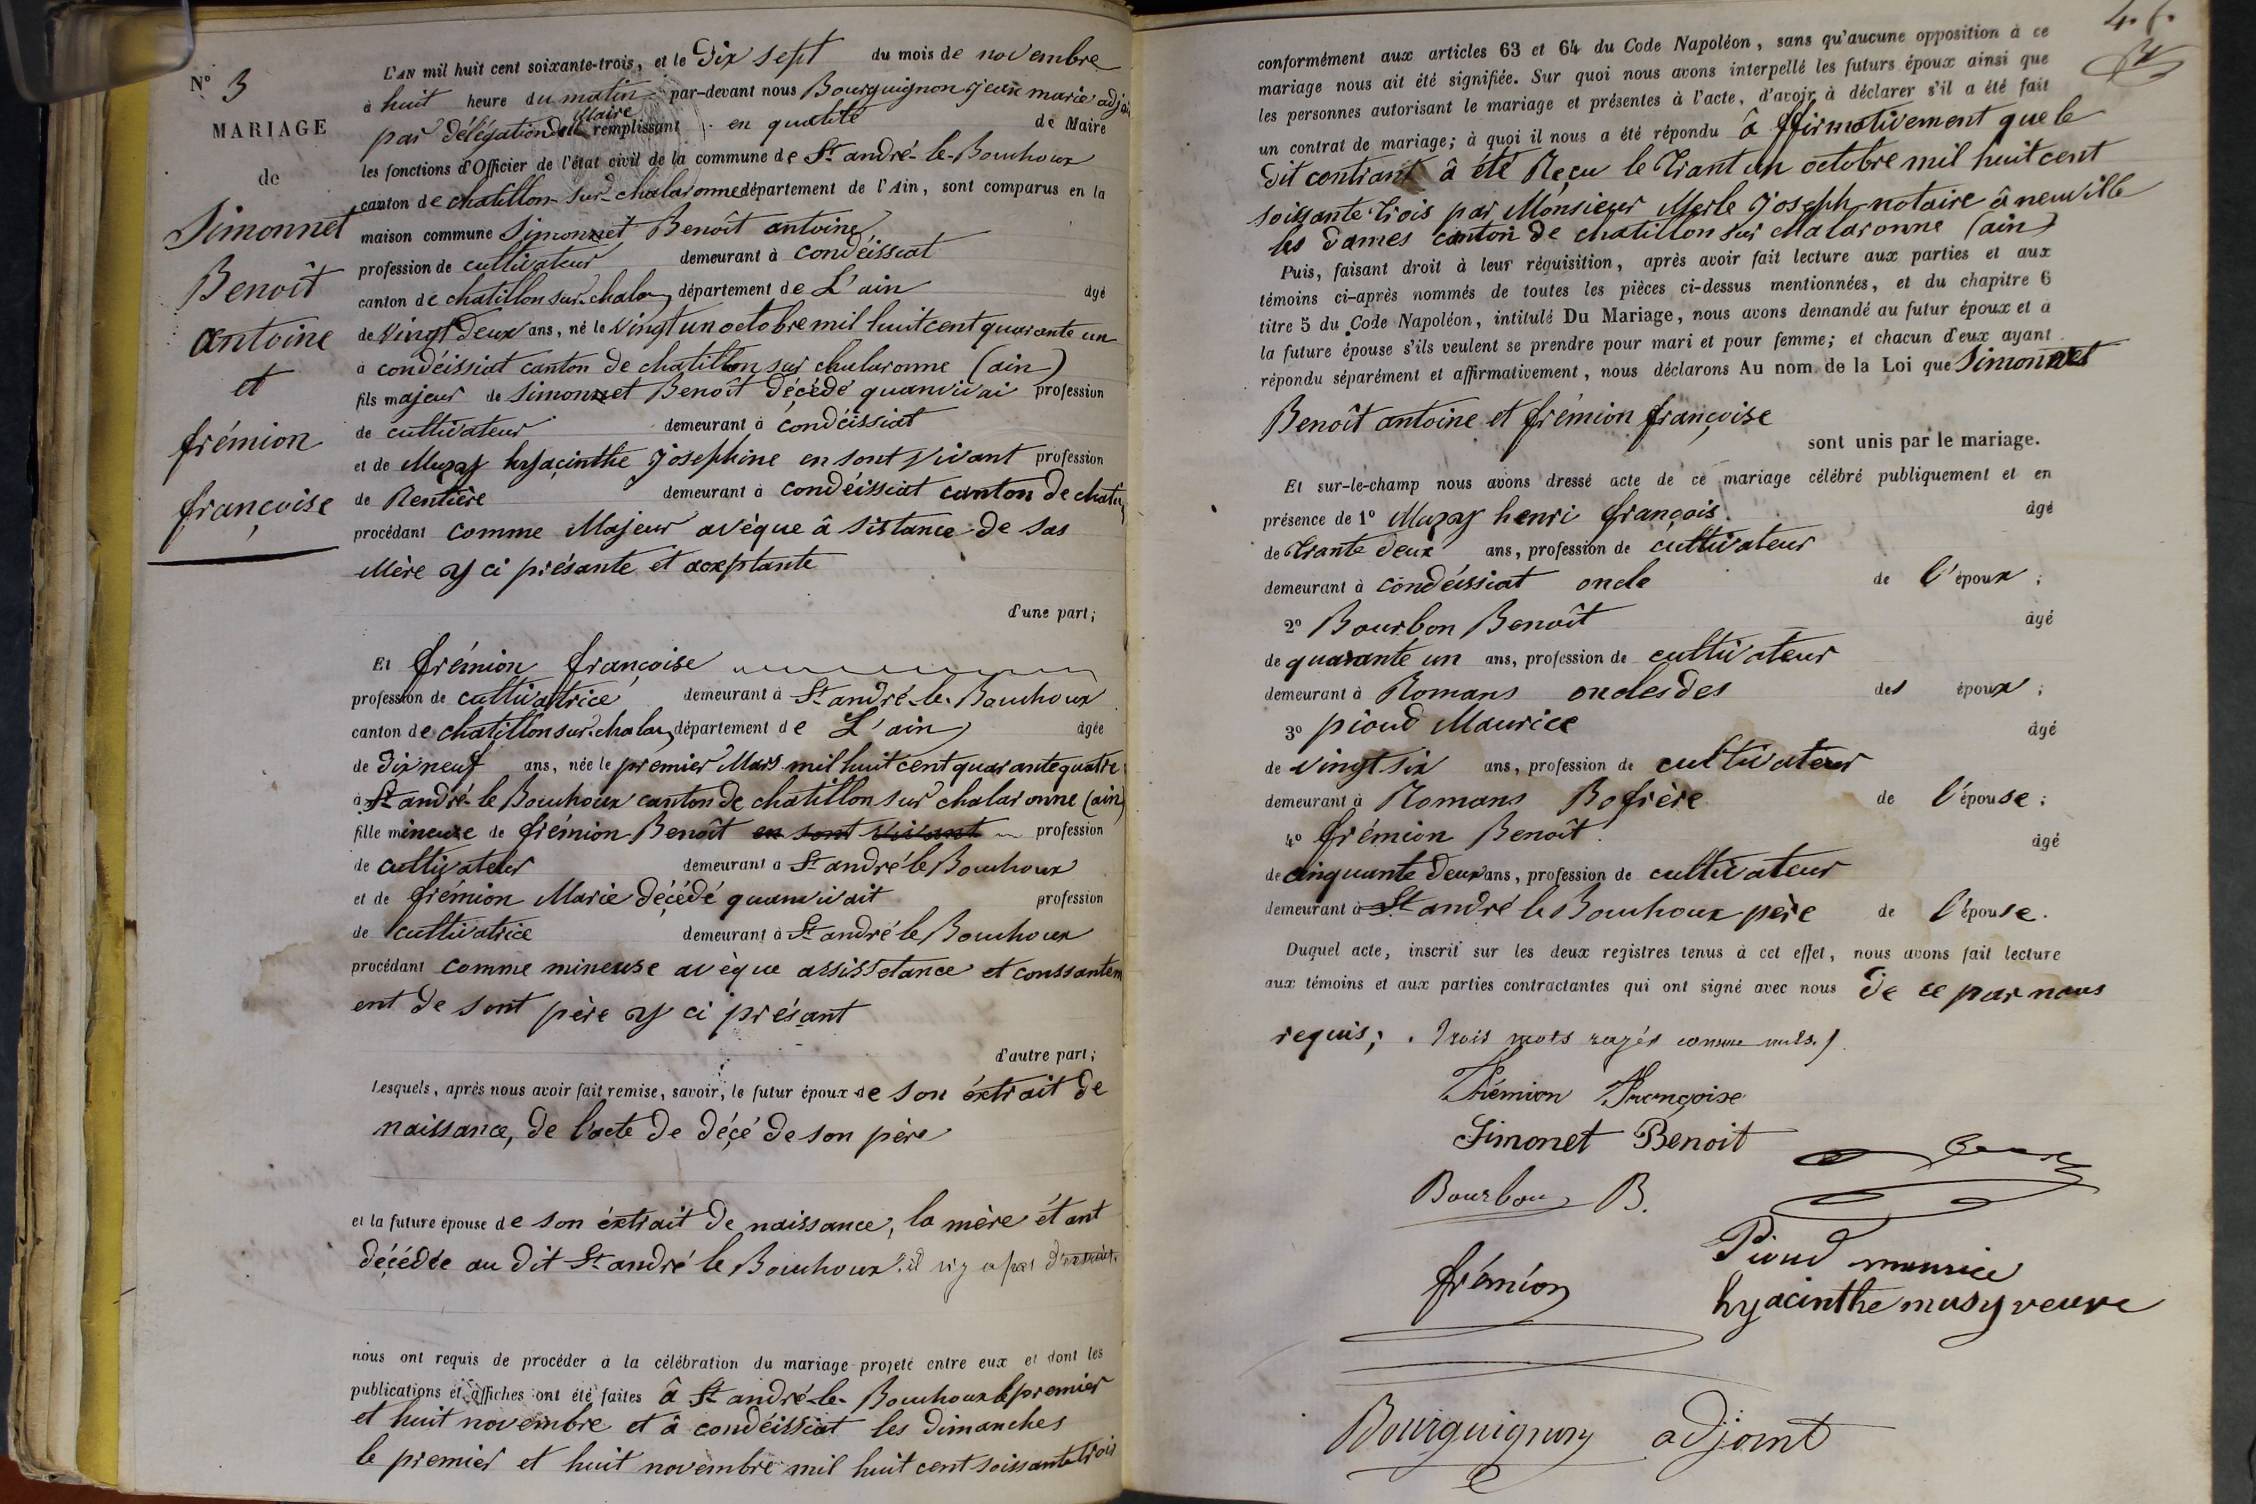 N° 3
MARIAGE
de
Simonnet
Benoît
antoine
et
frémion
françoise
L'AN mil huit cent soixante-trois, et le Dix sept du mois de novembre
à huit heure du matin par-devant nous Bourguignon jean marie adjoi
par délégation du Maire remplissant en qualité de Maire
les fonctions d'Officier de l'état civil de la commune de St andré-le-Bouchoux
canton de chatillon-sur-chalaronne département de l'Ain, sont comparus en la
maison commune Simonnet Benoît antoine
profession de cultivateur demeurant à condéissiat
canton de chatillon sur chalar département de L'ain âgé
de vingt Deux ans, né le vingt un octobre mil huit cent quarante un
à condéissiat canton de chatillon sur chalaronne (ain)
fils majeur de Simonnet Benoît Décédé quanvivai profession
de cultivateur demeurant à condéissiat
et de Muzy hyacinthe Josephine en sont vivant profession
de Rentière demeurant à condéissiat canton de chatil
procédant comme Majeur avèque â sistance de sas
Mère y ci présante et acxptante
d'une part;
Et frémion françoise
profession de cultivatrice demeurant à St andré-le-Bouchoux
canton de chatillon sur chalar département de L'ain âgée
de Dix neuf ans, née le premier Mars mil huit cent quarante quatre
à St andré-le Bouchoux canton de chatillon sur chalaronne (ain)
fille mineuse de frémion Benoît en sont vivant profession
de cultivateur demeurant à St andré le Bouchoux
et de frémion Marie Décédé quanvivait profession
de cultivatrice demeurant à St andré le Bouchoux
procédant comme mineuse avèque assisstance et conssantem
ent de sont père y ci présant
d'autre part;
Lesquels, après nous avoir fait remise, savoir, le futur époux de son éxtrait de
naissance, de l'acte de déçé de son père
et la future épouse de son éxtrait de naissance, la mère étant
décédée au dit St andré le Bouchoux il n'y a pas d'extrait.
nous ont requis de procéder à la célébration du mariage projeté entre eux et dont les
publications et affiches ont été faites â St andré-le-Bouchoux le premier
et huit novembre et à condéissiat les dimanches
le premier et huit novembre mil huit cent soissante trois
conformément aux articles 63 et 64 du Code Napoléon, sans qu'aucune opposition à ce
mariage nous ait été signifiée. Sur quoi nous avons interpellé les futurs époux ainsi que
les personnes autorisant le mariage et présentes à l'acte, d'avoir à déclarer s'il a été fait
un contrat de mariage; à quoi il nous a été répondu â ffirmativement que le
dit contrant â été Reçu le Trant un octobre mil huit cent
soissante trois par Monsieur Merle Joseph notaire â neuville
les Dames canton de chatillon sur chalaronne (ain)
Puis, faisant droit à leur réquisition, après avoir fait lecture aux parties et aux
témoins ci-après nommés de toutes les pièces ci-dessus mentionnées, et du chapitre 6
titre 5 du Code Napoléon, intitulé Du Mariage, nous avons demandé au futur époux et à
la future épouse s'ils veulent se prendre pour mari et pour femme; et chacun d'eux ayant
répondu séparément et affirmativement, nous déclarons Au nom de la Loi que Simonnet
Benoît antoine et frémion françoise
sont unis par le mariage.
Et sur-le-champ nous avons dressé acte de ce mariage célébré publiquement et en
présence de 1° Muzy henri françois âgé
de Trante deux ans, profession de cultivateur
demeurant à condéissiat oncle de l'époux;
2° Bourbon Benoît âgé
de quarante un ans, profession de cultivateur
demeurant à Romans oncles des des époux;
3° pioud Maurice âgé
de vingt six ans, profession de cultivateur
demeurant à Romans Bofrère de l'épouse;
4° frémion Benoît âgé
de cinquante deux ans, profession de cultivateur
demeurant à St andré le Bouchoux père de l'épouse.
Duquel acte, inscrit sur les deux registres tenus à cet effet, nous avons fait lecture
aux témoins et aux parties contractantes qui ont signé avec nous de ce par nous
requis; . Trois mots rayés comme nuls.
Frémion Françoise
Simonet Benoit
Bourbon B.
Pioud maurice
frémion
hyacinthe musy veuve
Bourguignon adjoint